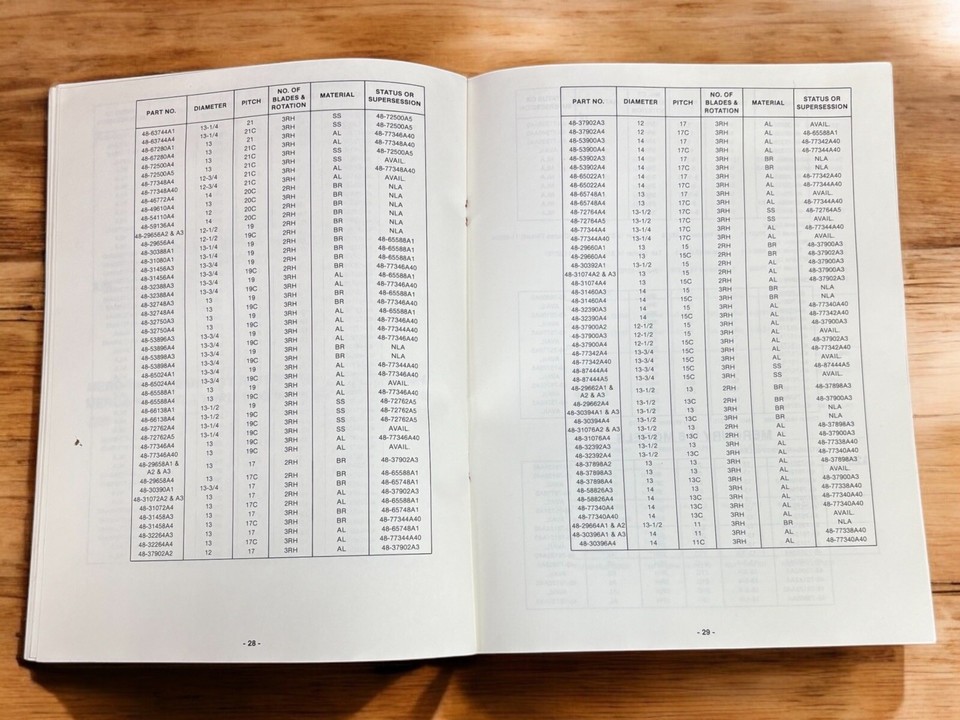 PART NO. DIAMETER PITCH NO. OF BLADES & ROTATION MATERIAL STATUS OR SUPERSESSION
48-63744A1 13-1/4 21 3RH SS 48-72500A5
48-63744A4 13-1/4 21C 3RH SS 48-72500A5
48-67280A1 13 21 3RH AL 48-77346A40
48-67280A4 13 21C 3RH AL 48-77348A40
48-72500A4 13 21C 3RH SS 48-72500A5
48-72500A5 13 21C 3RH SS AVAIL.
48-77348A4 12-3/4 21C 3RH AL 48-77348A40
48-77348A40 12-3/4 21C 3RH AL AVAIL.
48-46772A4 14 20C 2RH BR NLA
48-49610A4 13 20C 2RH BR NLA
48-54110A4 12 20C 2RH BR NLA
48-58136A4 14 20C 2RH BR NLA
48-29656A2 & A3 12-1/2 19 2RH BR NLA
48-29656A4 12-1/2 19C 2RH BR NLA
48-30388A1 13-1/4 19 3RH BR 48-65588A1
48-31080A1 13-1/4 19 2RH BR 48-65588A1
48-31456A3 13-3/4 19 3RH BR 48-65588A1
48-31456A4 13-3/4 19C 3RH BR 48-77346A40
48-32388A3 13-3/4 19 3RH AL 48-65588A1
48-32388A4 13-3/4 19C 3RH AL 48-77346A40
48-32748A3 13 19 3RH BR 48-65588A1
48-32748A4 13 19C 3RH BR 48-77346A40
48-32750A3 13 19 3RH AL 48-65588A1
48-32750A4 13 19C 3RH AL 48-77346A40
48-53896A3 13-3/4 19 3RH AL 48-77344A40
48-53896A4 13-3/4 19C 3RH AL 48-77346A40
48-53898A3 13-3/4 19 3RH BR NLA
48-53898A4 13-3/4 19C 3RH BR NLA
48-65024A1 13-3/4 19 3RH AL 48-77344A40
48-65024A4 13-3/4 19C 3RH AL 48-77346A40
48-65588A1 13 19 3RH AL AVAIL.
48-65588A4 13 19C 3RH AL 48-77346A40
48-66138A1 13-1/2 19 3RH SS 48-72762A5
48-66138A4 13-1/2 19C 3RH SS 48-72762A5
48-72762A4 13-1/4 19C 3RH SS 48-72762A5
48-72762A5 13-1/4 19C 3RH SS AVAIL.
48-77346A4 13 19C 3RH AL 48-77346A40
48-77346A40 13 19C 3RH AL AVAIL.
48-29658A1 & A2 & A3 13 17 2RH BR 48-37902A3
48-29658A4 13 17C 2RH BR 48-65588A1
48-30390A1 13-3/4 17 3RH BR 48-65748A1
48-31072A2 & A3 13 17 2RH AL 48-37902A3
48-31072A4 13 17C 2RH AL 48-65588A1
48-31458A3 13 17 3RH BR 48-65748A1
48-31458A4 13 17C 3RH BR 48-77344A40
48-32264A3 13 17 3RH AL 48-65748A1
48-32264A4 13 17C 3RH AL 48-77344A40
48-37902A2 12 17 3RH AL 48-37902A3
- 28 -
PART NO. DIAMETER PITCH NO. OF BLADES & ROTATION MATERIAL STATUS OR SUPERSESSION
48-37902A3 12 17 3RH AL AVAIL.
48-37902A4 12 17C 3RH AL 48-65588A1
48-53900A3 14 17 3RH AL 48-77342A40
48-53900A4 14 17C 3RH AL 48-77344A40
48-53902A3 14 17 3RH BR NLA
48-53902A4 14 17C 3RH BR NLA
48-65022A1 14 17 3RH AL 48-77342A40
48-65022A4 14 17C 3RH AL 48-77344A40
48-65748A1 13 17 3RH AL AVAIL.
48-65748A4 13 17C 3RH AL 48-77344A40
48-72764A4 13-1/2 17C 3RH SS 48-72764A5
48-72764A5 13-1/2 17C 3RH SS AVAIL.
48-77344A4 13-1/4 17C 3RH AL 48-77344A40
48-77344A40 13-1/4 17C 3RH AL AVAIL.
48-29660A1 13 15 2RH BR 48-37900A3
48-29660A4 13 15C 2RH BR 48-37902A3
48-30392A1 13-1/2 15 3RH BR 48-37900A3
48-31074A2 & A3 13 15 2RH AL 48-37900A3
48-31074A4 13 15C 2RH AL 48-37902A3
48-31460A3 14 15 3RH BR NLA
48-31460A4 14 15C 3RH BR NLA
48-32390A3 14 15 3RH AL 48-77340A40
48-32390A4 14 15C 3RH AL 48-77342A40
48-37900A2 12-1/2 15 3RH AL 48-37900A3
48-37900A3 12-1/2 15 3RH AL AVAIL.
48-37900A4 12-1/2 15C 3RH AL 48-37902A3
48-77342A4 13-3/4 15C 3RH AL 48-77342A40
48-77342A40 13-3/4 15C 3RH AL AVAIL.
48-87444A4 13-3/4 15C 3RH SS 48-87444A5
48-87444A5 13-3/4 15C 3RH SS AVAIL.
48-29662A1 & A2 & A3 13-1/2 13 2RH BR 48-37898A3
48-29662A4 13-1/2 13C 2RH BR 48-37900A3
48-30394A1 & A3 13-1/2 13 3RH BR NLA
48-30394A4 13-1/2 13C 3RH BR NLA
48-31076A2 & A3 13-1/2 13 2RH AL 48-37898A3
48-31076A4 13-1/2 13C 2RH AL 48-37900A3
48-32392A3 13-1/2 13 3RH AL 48-77338A40
48-32392A4 13-1/2 13C 3RH AL 48-77340A40
48-37898A2 13 13 3RH AL 48-37898A3
48-37898A3 13 13 3RH AL AVAIL.
48-37898A4 13 13C 3RH AL 48-37900A3
48-58826A3 14 13 3RH AL 48-77338A40
48-58826A4 14 13C 3RH AL 48-77340A40
48-77340A4 14 13C 3RH AL 48-77340A40
48-77340A40 14 13C 3RH AL AVAIL.
48-29664A1 & A2 13-1/2 11 3RH BR NLA
48-30396A1 & A3 14 11 3RH AL 48-77338A40
48-30396A4 14 11C 3RH AL 48-77340A40
- 29 -